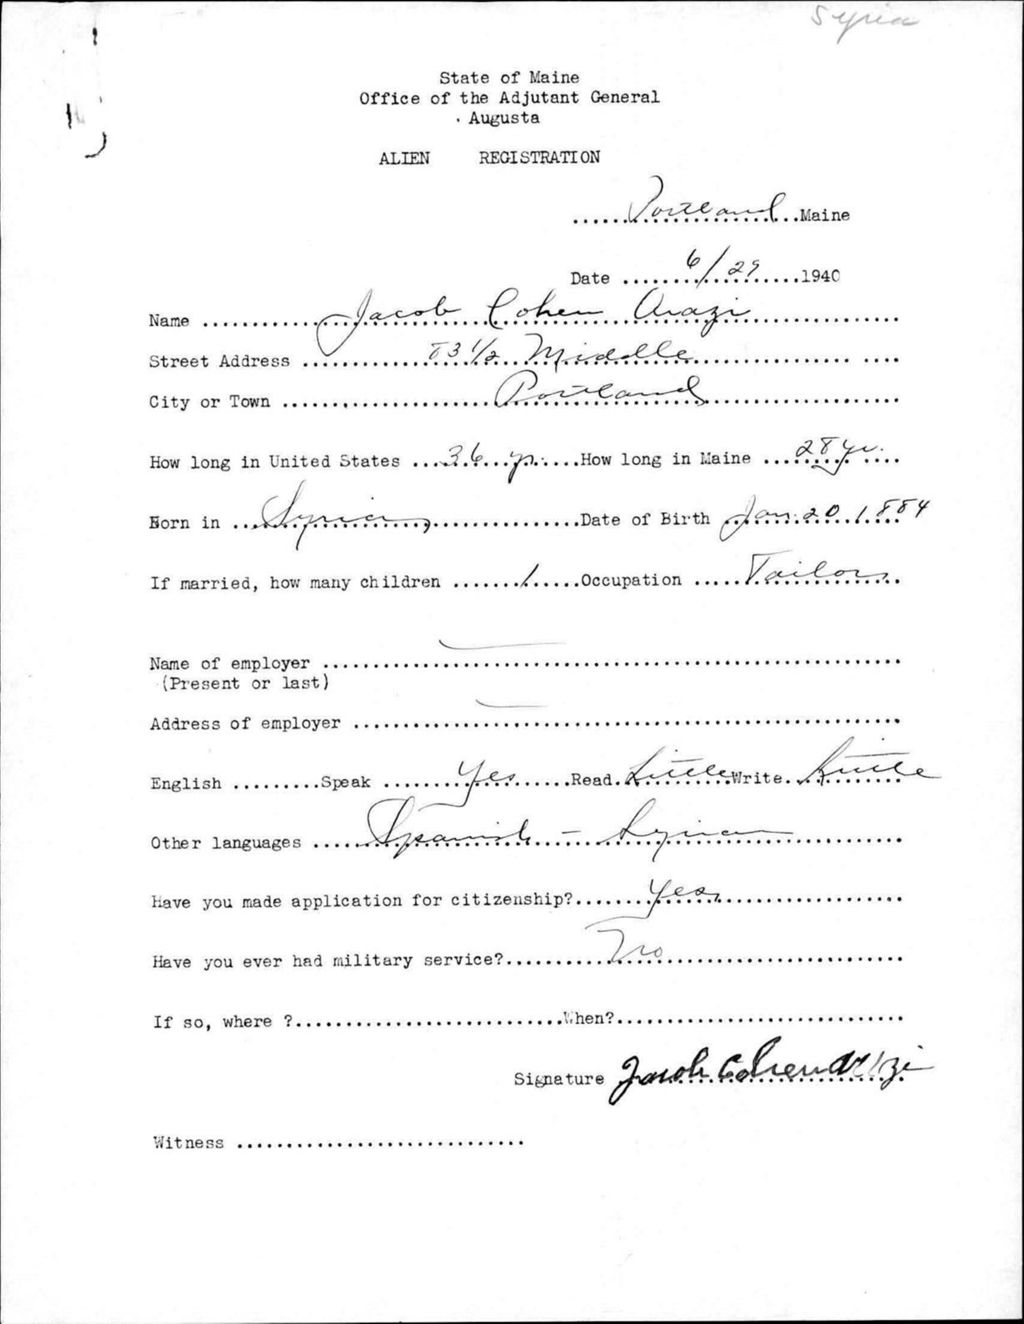 Syria
State of Maine
Office of the Adjutant General
Augusta
ALIEN REGISTRATION
Portland Maine
Date 6/29 1940
Name Jacob Cohen Arazi
Street Address 83 1/2 Middle
City or Town Portland
How long in United States 36 yr. How long in Maine 28 yr.
Born in Syria, Date of Birth Jan. 20, 1884
If married, how many children 1 Occupation Tailor
Name of employer —
(Present or last)
Address of employer —
English Speak Yes Read Little Write Little
Other languages Spanish - Syrian
Have you made application for citizenship? Yes
Have you ever had military service? No
If so, where ? When?
Signature Jacob Cohen Arazi
Witness